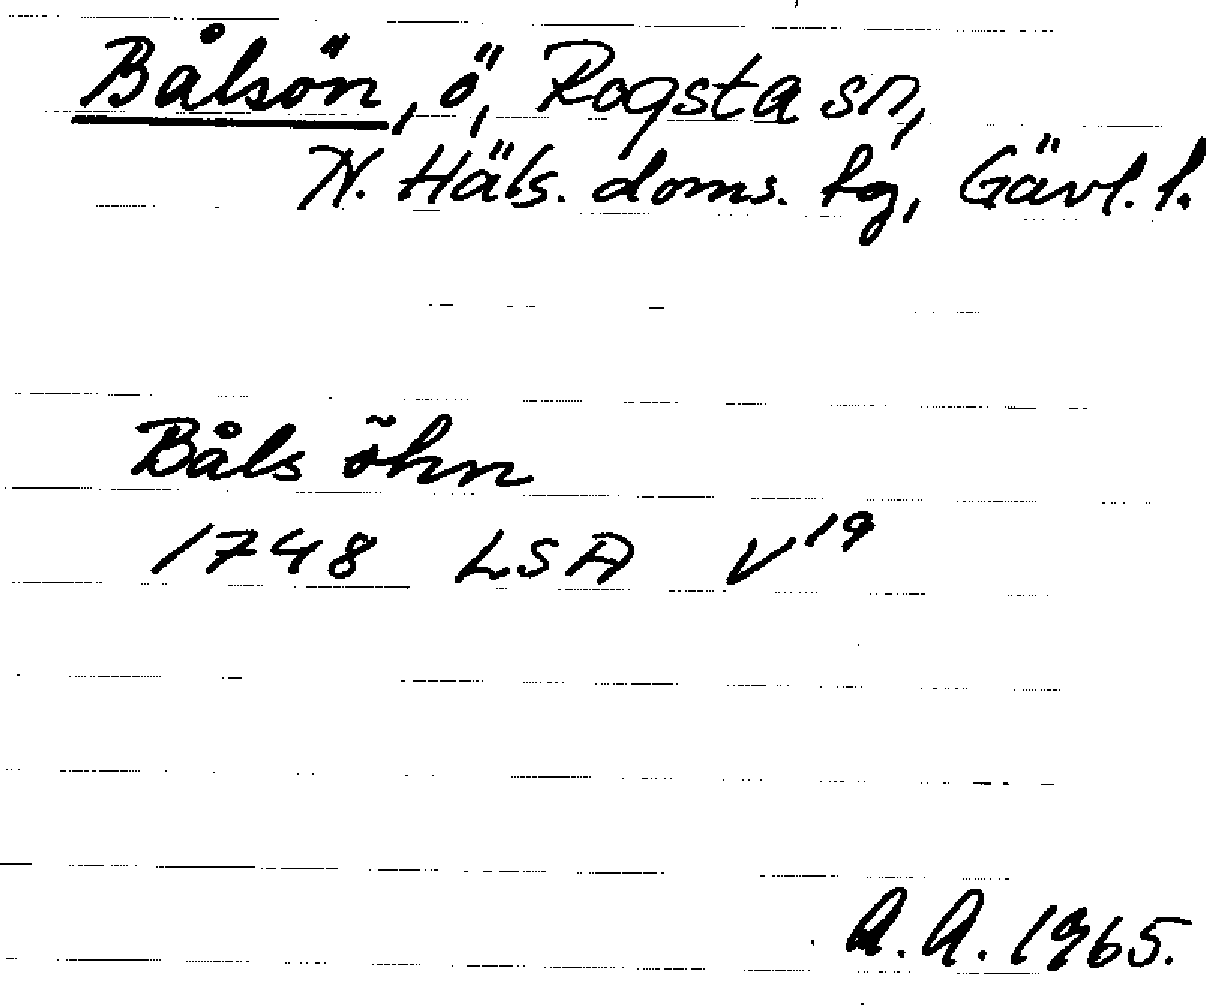 Bålsön, ö, Rogsta sn,
N. Häls. doms. fög, Gävl. l.
Båls õhn
1748 LSA V¹⁹
A.A. 1965.